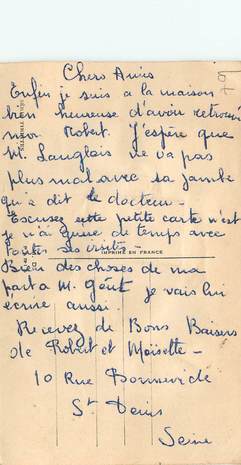 Chers Amis
Enfin je suis a la maison
bien heureuse d'avoir retrouvé
mon Robert. J'espère que
M. Langlais ne va pas
plus mal avec sa jambe
qu'a dit le docteur -
Escusez cette petite carte
je n'ai de temps avec
toutes ses
IMPRIMÉ EN FRANCE
Bien des choses de ma
part a M. je vais lui
écrire aussi.
Recevez de Bons Baisers
de Robert et Moïsette -
10 Rue
St Denis
Seine